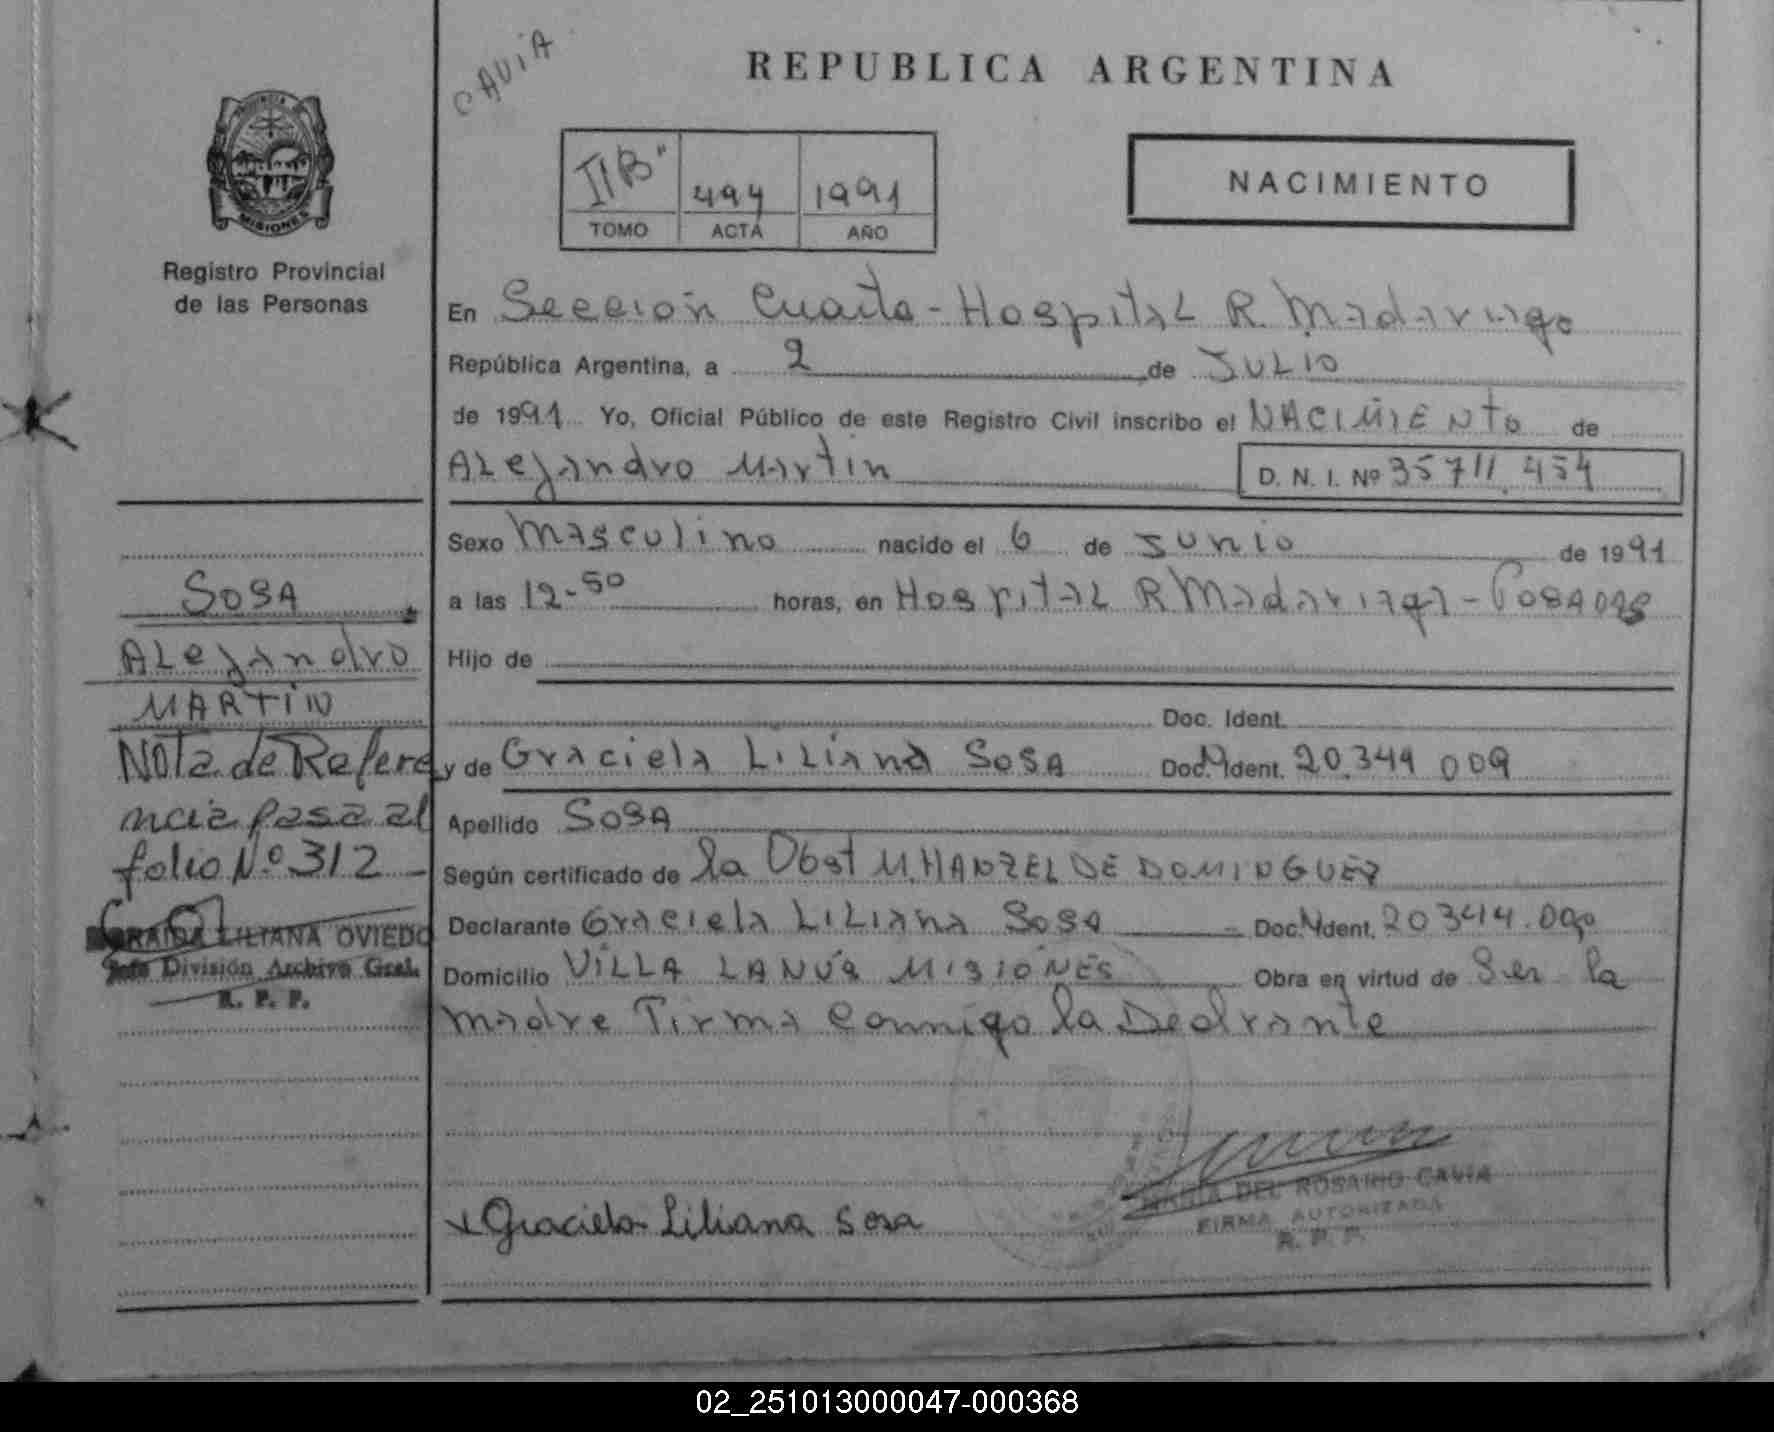 CAVIA
REPUBLICA ARGENTINA
PROVINCIA DE
MISIONES
Registro Provincial
de las Personas
II"B"
494
1991
TOMO
ACTA
AÑO
NACIMIENTO
En Sección Cuarta - Hospital R. Madariaga
República Argentina, a 2 de JULIO
de 1991 Yo, Oficial Público de este Registro Civil inscribo el NACIMIENTO de
Alejandro Martin D. N. I. Nº 35711.454
Sexo Masculino nacido el 6 de Junio de 1991
a las 12-50 horas, en Hospital R Madariaga - Posadas
Hijo de
Doc. Ident.
y de Graciela Liliana SOSA Doc. Ident. 20.344 009
Apellido SOSA
Según certificado de la Obst M. HANZEL DE DOMINGUEZ
Declarante Graciela Liliana Sosa Doc. Ident. 20344.009
Domicilio VILLA LANUS MISIONES Obra en virtud de Ser la
madre Firma Conmigo la Declrante
SOSA
Alejandro
MARTIN
Nota de Refere
ncia pasa al
folio Nº 312 -
LILIANA OVIEDO
Jefe División Archivo Gral.
R. P. P.
x Graciela Liliana Sosa
MARIA DEL ROSARIO CAVIA
FIRMA AUTORIZADA
R. P. P.
02_251013000047-000368